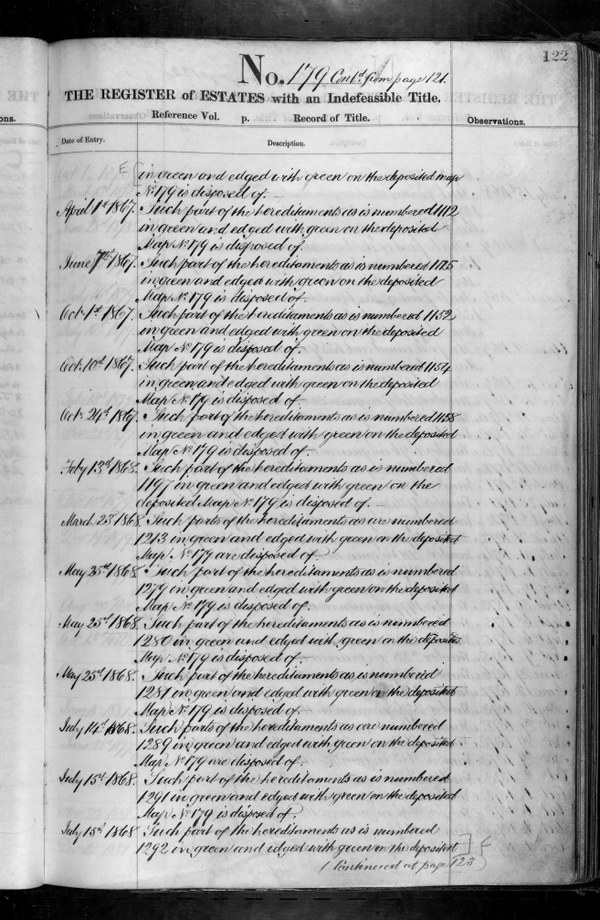 122
No. 179 Cont.d from page 121.
THE REGISTER of ESTATES with an Indefeasible Title.
Reference Vol. p. Record of Title.
Observations.
ons.
Date of Entry. Description.
E [in green and edged with green on the deposited map
No 179 is disposed of.
April 1st 1867. Such part of the hereditaments as is numbered 1112
in green and edged with green on the deposited
Map No 179 is disposed of.
June 7th 1867. Such part of the hereditaments as is numbered 1125
in green and edged with green on the deposited
Map No 179 is disposed of.
Oct. 1st 1867. Such part of the hereditaments as is numbered 1152
in green and edged with green on the deposited
Map No 179 is disposed of.
Oct. 10th 1867. Such part of the hereditaments as is numbered 1154
in green and edged with green on the deposited
Map No 179 is disposed of.
Oct. 24th 1867. Such part of the hereditaments as is numbered 1158
in green and edged with green on the deposited
Map No 179 is disposed of.
Feby 13th 1868. Such part of the hereditaments as is numbered
1197 in green and edged with green on the
deposited Map No 179 is disposed of.
March 23d 1868 Such parts of the hereditaments as are numbered
1213 in green and edged with green on the deposited
Map No 179 are disposed of
May 25th 1868. Such part of the hereditaments as is numbered
1279 in green and edged with green on the deposited
Map No 179 is disposed of.
May 25th 1868. Such part of the hereditaments as is numbered
1280 in green and edged with green on the deposited
Map No 179 is disposed of.
May 25th 1868. Such part of the hereditaments as is numbered
1281 in green and edged with green on the deposited
Map No 179 is disposed of.
July 14th 1868. Such parts of the hereditaments as are numbered
1289 in green and edged with green on the deposited
Map No 179 are disposed of.
July 15th 1868. Such part of the hereditaments as is numbered
1291 in green and edged with green on the deposited
Map No 179 is disposed of.
July 15th 1868 Such part of the hereditaments as is numbered
1292 in green and edged with green on the deposited] E
(Continued at page 123)